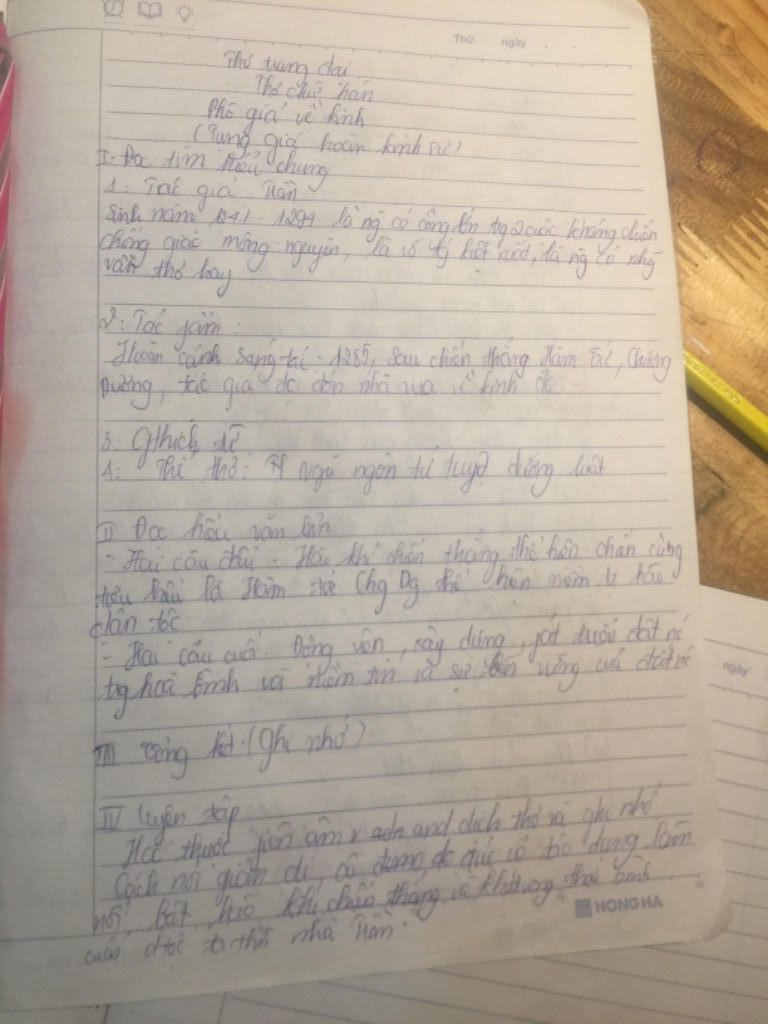 Thứ ngày
Thơ trung đại
Thơ chữ hán
Phò giá về kinh
(Tụng giá hoàn kinh sư)
I. Đọc tìm hiểu chung
1: Tác giả Trần
Sinh năm 1241 - 1294 là ng có công lớn tg 2 cuộc kháng chiến
chống giặc mông nguyên, là võ kiệt xuất, là ng có nhg
vần thơ hay
2: Tác phẩm:
Hoàn cảnh sáng tác: 1285, sau chiến thắng Hàm Tử, Chương
Dương, tác giả đi đón nhà vua về kinh đô
3: Gthích từ
4: Thể thơ: Ngũ ngôn tứ tuyệt đường luật
II Đọc hiểu văn bản
- Hai câu đầu. Hào khí chiến thắng thể hiện chiến công
tiêu biểu là Hàm tử Chg Dg thể hiện niềm tự hào
dân tộc
- Hai câu cuối. Động viên, xây dựng, phát triển đất nc
tg hoà bình và niềm tin và sự bền vững của đất nc
III Tổng kết. (Ghi nhớ)
IV Luyện tập
Học thuộc phiên âm and dịch thơ và ghi nhớ
Cách nói giản dị, cô đúc có tác dụng làm
nổi bật hào khí chiến thắng và khát vọng thái bình
của dtộc ta thời nhà Trần.
HONG HA
ngày